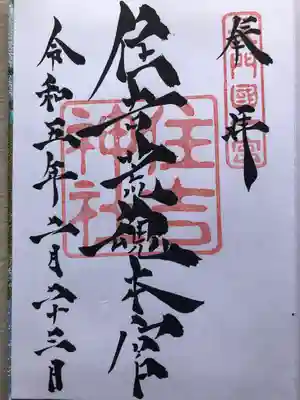 長門國一宮
奉拝
住吉荒魂本宮
住吉神社
令和五年二月二十三日